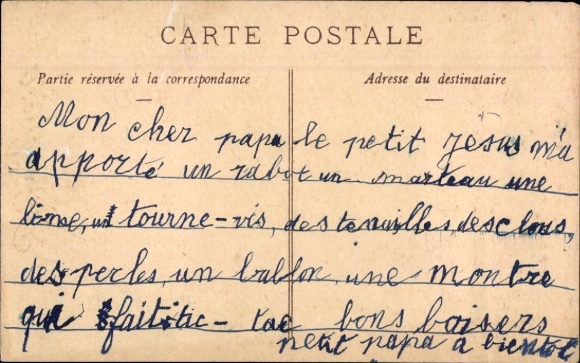 CARTE POSTALE
Partie réservée à la correspondance
Adresse du destinataire
Mon cher papa le petit Jésus m'a
apporté un rabot un marteau une
lime, un tourne-vis, des tenailles des clous,
des perles, un ballon, une montre
qui fait tic-tac bons baisers
petit papa a bientot